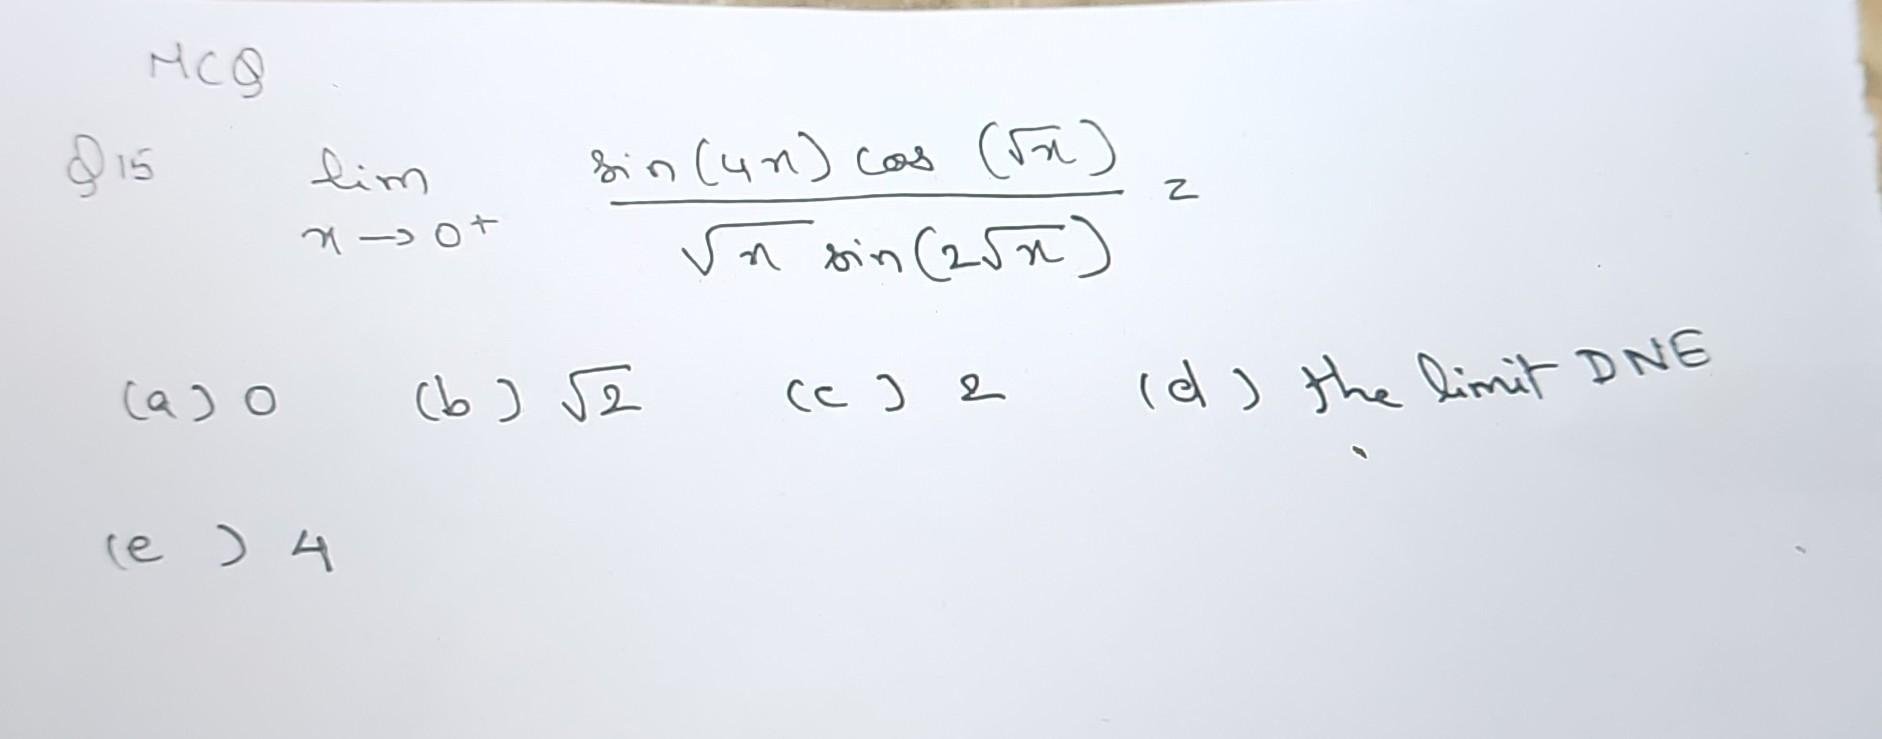 MCQ
Q15 lim x→0+ sin(4x) cos (√x) / √x sin(2√x) =
(a) 0 (b) √2 (c) 2 (d) the limit DNE
(e) 4